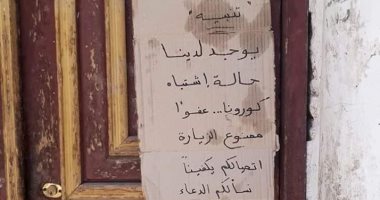 "تنبيه"
يوجد لدينا
حالة إشتباه
كورونا... عفوًا
ممنوع الزيارة
اتصالكم يكفينا
نسألكم الدعاء